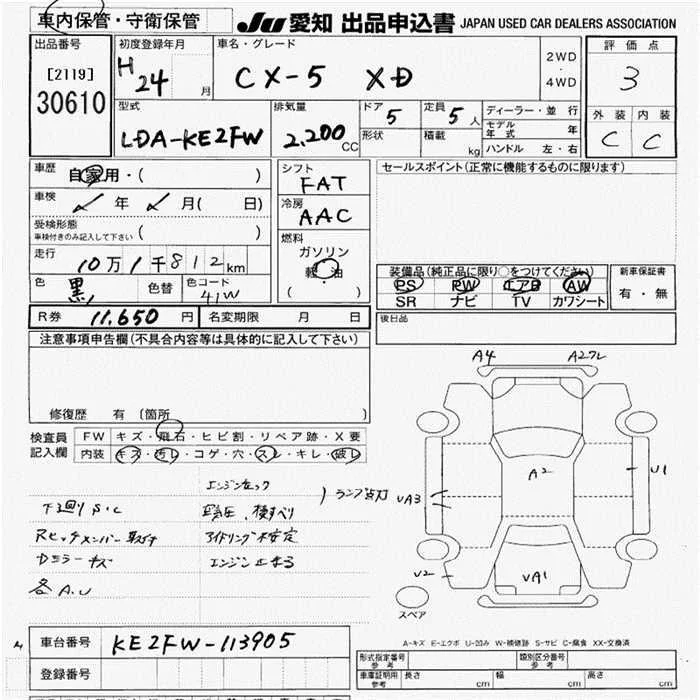 車内保管・守衛保管
JU 愛知 出品申込書 JAPAN USED CAR DEALERS ASSOCIATION
出品番号
[2119]
30610
初度登録年月
H24 月
車名・グレード
CX-5 XD
2WD
・
4WD
評価点
3
外装 内装
C C
型式
LDA-KE2FW
排気量
2,200 CC
ドア
5
形状
定員
5 人
積載
kg
ディーラー・並行
モデル年式 年
ハンドル 左・右
車歴
自家用・( )
車検
年 月( 日)
受検形態
車検付きのみ記入して下さい ( )
走行
10万1千812km
色
黒
色替
色コード
41W
シフト
FAT
冷房
AAC
燃料
ガソリン
軽・油
( )
セールスポイント(正常に機能するものに限ります)
装備品(純正品に限り○をつけてください)
PS PW エアB AW
SR ナビ TV カワシート
新車保証書
有・無
R券 11,650 円
名変期限 月 日
後日品
注意事項申告欄(不具合内容等は具体的に記入して下さい)
修復歴 有 〔箇所 〕
検査員記入欄
FW キズ・飛石・ヒビ割・リペア跡・X要
内装 キズ・汚れ・コゲ・穴・スレ・キレ・破レ
下廻り S・C
Rヒッチメンバー取付
Dミラーキズ
各A.U
エンジンチェック
ランプ点灯
アイドリング不安定
A4
A2スレ
A2
U1
UA3
U2
UA1
スペア
A-キズ E-エクボ U-凹み W-補修跡 S-サビ C-腐食 XX-交換済
車台番号 KE2FW-113905
登録番号
形式指定番号
参考
類別区分番号
参考
車庫証明用
参考
長さ cm 幅 cm 高さ cm